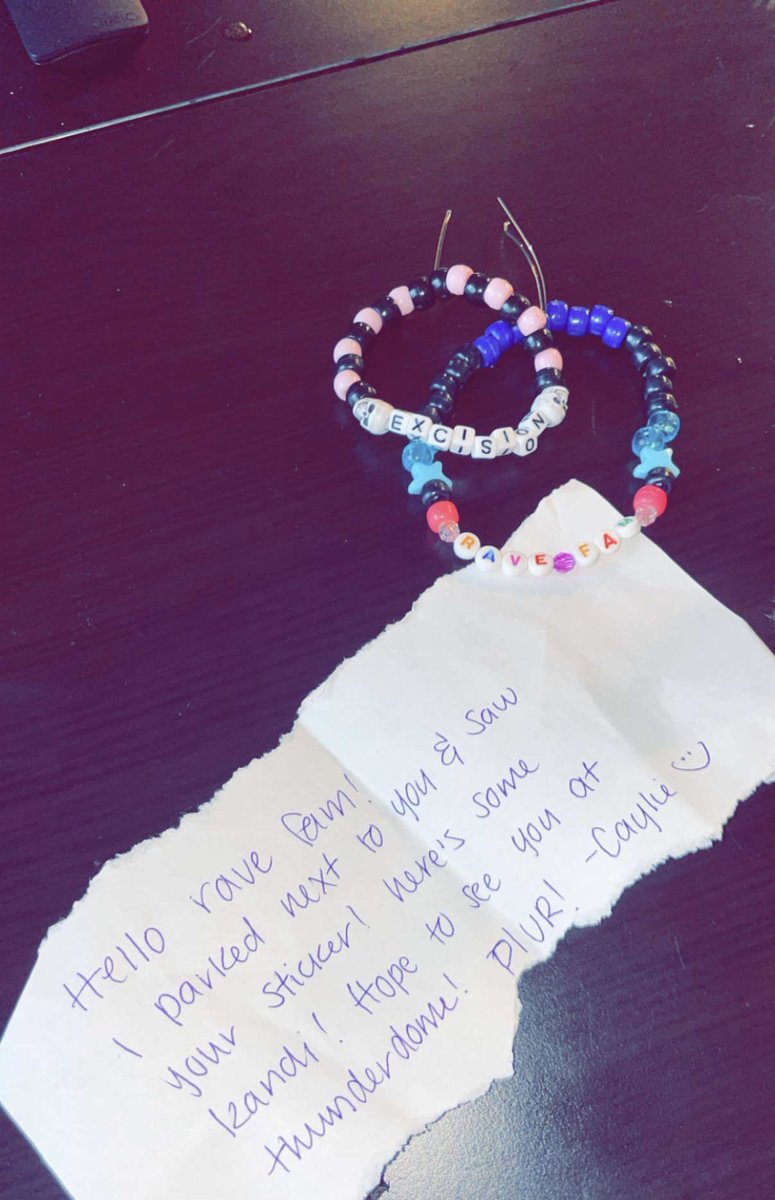 EXCISION
RAVE FAM
Hello rave fam!
I parked next to you & saw
your sticker! here's some
kandi! Hope to see you at
thunderdome! PlUR! -Caylie